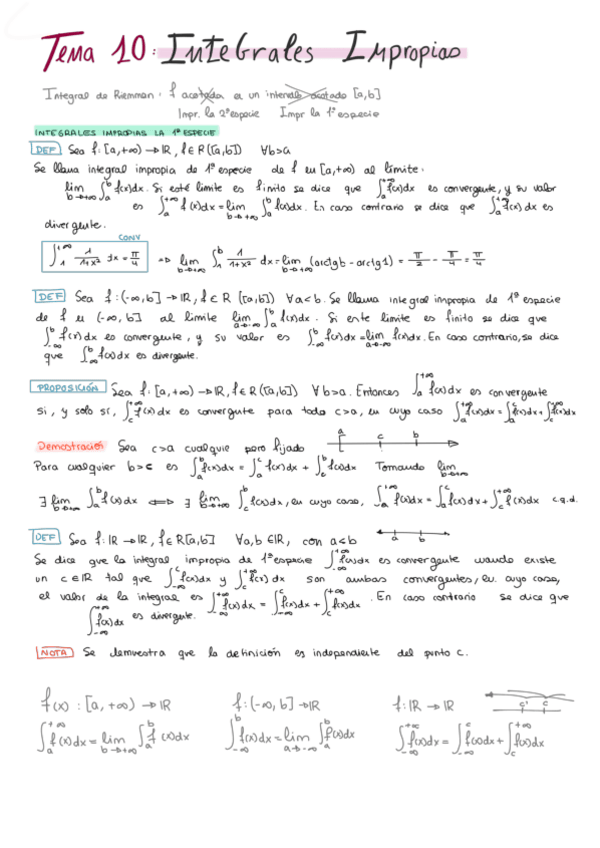 Tema 10: Integrales Impropias
Integral de Riemman: f acotada en un intervalo acotado [a,b]
Impr. la 2ª especie Impr la 1ª especie
INTEGRALES IMPROPIAS LA 1ª ESPECIE
DEF Sea f: [a,+∞) → IR, f ∈ R([a,b]) ∀b>a
Se llama integral impropia de 1ª especie de f en [a,+∞) al límite:
lim b→+∞ ∫_a^b f(x)dx. Si esté limite es finito se dice que ∫_a^{+∞} f(x)dx es convergente, y su valor
es ∫_a^{+∞} f(x)dx = lim b→+∞ ∫_a^b f(x)dx. En caso contrario se dice que ∫_a^{+∞} f(x)dx es
divergente.
CONV
∫_1^{+∞} 1/(1+x²) dx = π/4 ⇒ lim b→+∞ ∫_1^b 1/(1+x²) dx = lim b→+∞ (arctg b - arctg 1) = π/2 - π/4 = π/4
DEF Sea f: (-∞,b] → IR, f ∈ R([a,b]) ∀a<b. Se llama integral impropia de 1ª especie
de f en (-∞, b] al limite lim a→-∞ ∫_a^b f(x)dx. Si este limite es finito se dice que
∫_{-∞}^b f(x)dx es convergente, y su valor es ∫_{-∞}^b f(x)dx = lim a→-∞ f(x)dx. En caso contrario, se dice
que ∫_{-∞}^b f(x)dx es divergente.
PROPOSICIÓN Sea f: [a,+∞) → IR, f ∈ R([a,b]) ∀b>a. Entonces ∫_a^{+∞} f(x)dx es convergente
si, y solo si, ∫_c^{+∞} f(x)dx es convergente para todo c>a, en cuyo caso ∫_a^{+∞} f(x)dx = ∫_a^c f(x)dx + ∫_c^{+∞} f(x)dx
Demostración Sea c>a cualquie pero fijado
a c b
Para cualquier b>c es ∫_a^b f(x)dx = ∫_a^c f(x)dx + ∫_c^b f(x)dx Tomando lim b→+∞
∃ lim b→+∞ ∫_a^b f(x)dx ⟺ ∃ lim b→+∞ ∫_c^b f(x)dx, en cuyo caso, ∫_a^{+∞} f(x)dx = ∫_a^c f(x)dx + ∫_c^{+∞} f(x)dx c.q.d.
DEF Sea f: IR → IR, f ∈ R[a,b] ∀a,b ∈ IR, con a<b
a b
Se dice que la integral impropia de 1ª especie ∫_{-∞}^{+∞} f(x)dx es convergente cuando existe
un c ∈ IR tal que ∫_{-∞}^c f(x)dx y ∫_c^{+∞} f(x)dx son ambas convergentes, en cuyo caso,
el valor de la integral es ∫_{-∞}^{+∞} f(x)dx = ∫_{-∞}^c f(x)dx + ∫_c^{+∞} f(x)dx. En caso contrario se dice que
∫_{-∞}^{+∞} f(x)dx es divergente.
NOTA Se demuestra que la definición es independiente del punto c.
f(x): [a,+∞) → IR f: (-∞,b] → IR f: IR → IR c' c
∫_a^{+∞} f(x)dx = lim b→+∞ ∫_a^b f(x)dx ∫_{-∞}^b f(x)dx = lim a→-∞ ∫_a^b f(x)dx ∫_{-∞}^{+∞} f(x)dx = ∫_{-∞}^c f(x)dx + ∫_c^{+∞} f(x)dx